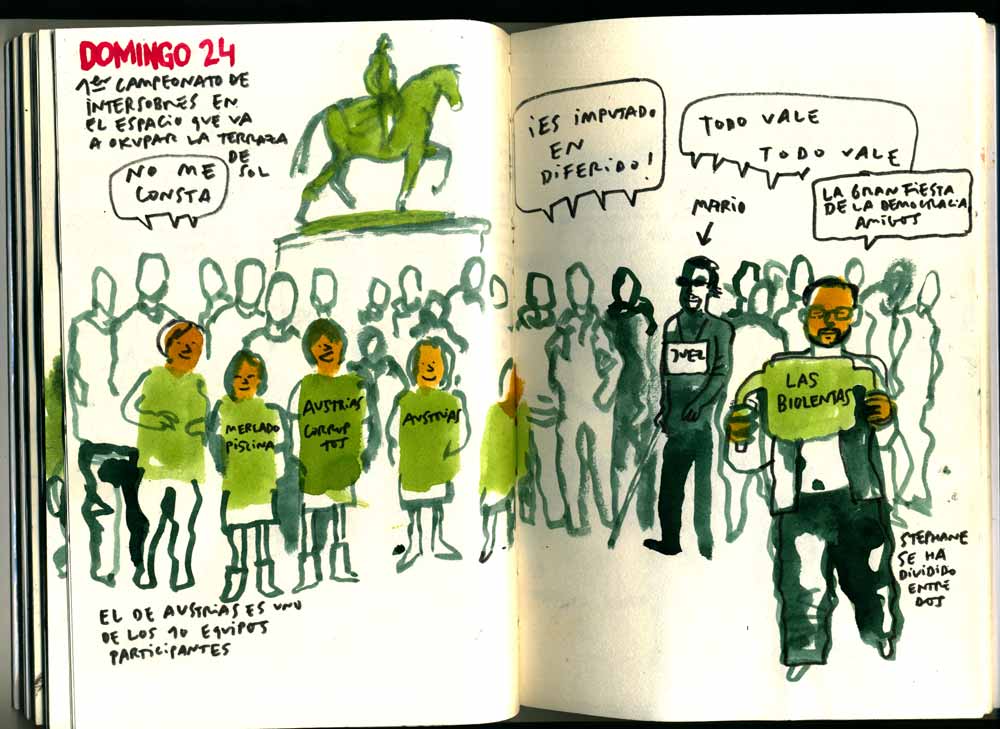 DOMINGO 24
1er CAMPEONATO DE
INTERSOBRES EN
EL ESPACIO QUE VA
A OKUPAR LA TERRAZA
DE
SOL
NO ME
CONSTA
MERCADO
PISCINA
AUSTRIAS
CORRUP
TOS
AUSTRIAS
EL DE AUSTRIAS ES UNO
DE LOS 10 EQUIPOS
PARTICIPANTES
¡ES IMPUTADO
EN
DIFERIDO!
TODO VALE
TODO VALE
MARIO
LA GRAN FIESTA
DE LA DEMOCRACIA,
AMIGOS
JUEZ
LAS
BIOLENTAS
STEPHANE
SE HA
DIVIDIDO
ENTRE
DOS